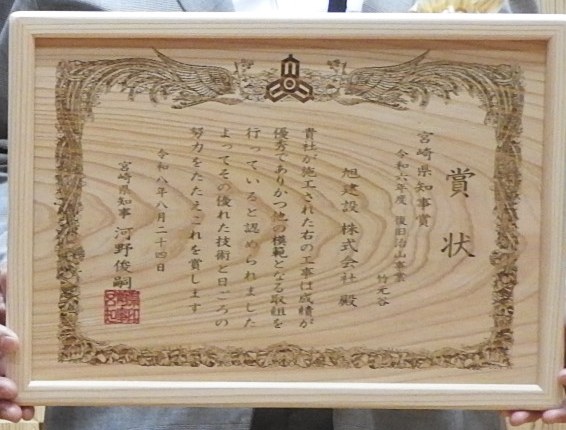 賞状
宮崎県知事賞
令和六年度 復旧治山事業
竹元谷
旭建設 株式会社 殿
貴社が施工された右の工事は成績が
優秀でありかつ他の模範となる取組を
行っていると認められました
よってその優れた技術と日ごろの
努力をたたえこれを賞します
令和八年八月二十四日
宮崎県知事 河野俊嗣